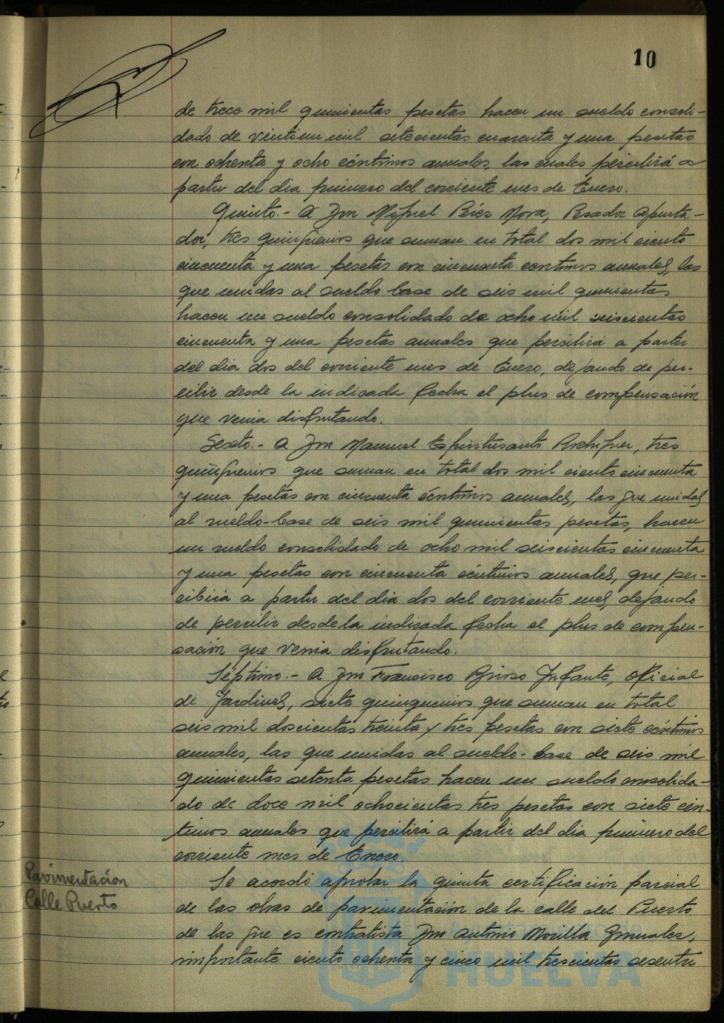 10
de trece mil quinientas pesetas hacen un sueldo consoli-
dado de veintiun mil setecientas cuarenta y una pesetas
con ochenta y ocho céntimos anuales, las cuales percibirá a
partir del dia primero del corriente mes de Enero.
Quinto.- A Don Miguel Mora, Pesador Apunta-
dor, tres quinquenios que suman en total dos mil ciento
cincuenta y una pesetas con cincuenta centimos anuales, las
que unidas al sueldo base de seis mil quinientas
hacen un sueldo consolidado de ocho mil seiscientas
cincuenta y una pesetas anuales que percibirá a partir
del dia dos del corriente mes de Enero, dejando de per-
cibir desde la indicada fecha el plus de compensación
que venia disfrutando.
Sexto.- A Don Manuel Espiritusanto, tres
quinquenios que suman en total dos mil ciento cincuenta
y una pesetas con cincuenta céntimos anuales, las que unidas
al sueldo-base de seis mil quinientas pesetas, hacen
un sueldo consolidado de ocho mil seiscientas cincuenta
y una pesetas con cincuenta céntimos anuales, que per-
cibirá a partir del dia dos del corriente mes, dejando
de percibir desde la indicada fecha el plus de compen-
sación que venia disfrutando.
Séptimo.- A Don Francisco Infante, Oficial
de Jardines, siete quinquenios que suman en total
seis mil doscientas treinta y tres pesetas con siete céntimos
anuales, las que unidas al sueldo-base de seis mil
quinientas setenta pesetas hacen un sueldo consolida-
do de doce mil ochocientas tres pesetas con siete cén-
timos anuales que percibirá a partir del dia primero del
corriente mes de Enero.
Pavimentacion
Calle Puerto
Se acordó aprobar la quinta certificación parcial
de las obras de pavimentación de la calle del Puerto
de las que es contratista Don Antonio Morilla Gonzalez,
importante ciento ochenta y cinco mil trescientas sesenta
HUELVA